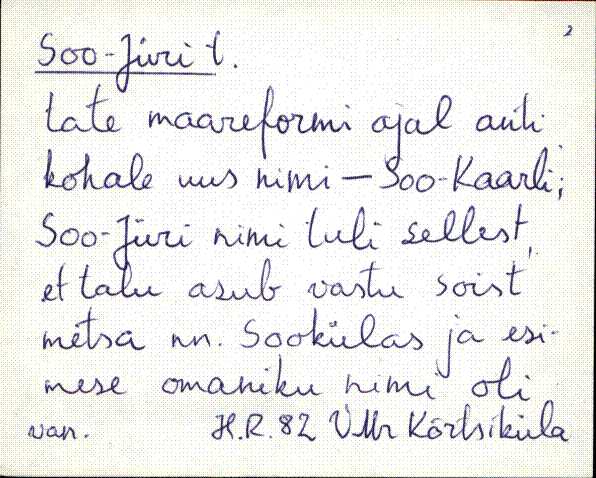 2
Soo-Jüri t.
tate maareformi ajal anti
kohale uus nimi – Soo-Kaarli;
Soo-Jüri nimi tuli sellest,
et talu asub vastu soist
metsa nn. Sookülas ja esi-
mese omaniku nimi oli
van. H.R. 82 VMr Kõrtsiküla